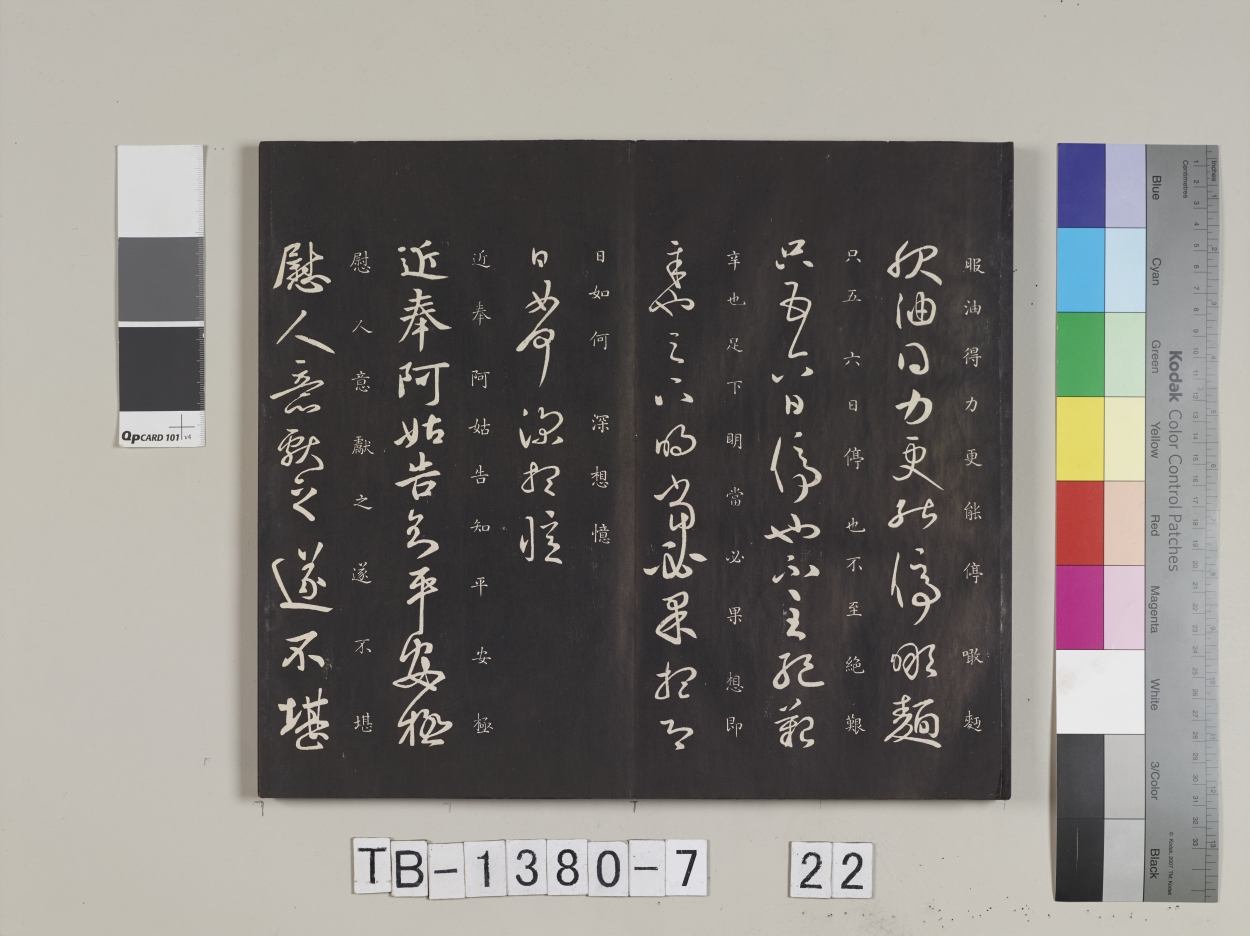 服油得力更能停噉麪
服油得力更能停噉麵
只五六日停也不至絕艱
只五六日停也不至絕艱
幸也足下明當必果想即
幸也足下明當必果想即
日如何深想憶
日如何深想憶
近奉阿姑告知平安極
近奉阿姑告知平安極
慰人意獻之遂不堪
慰人意獻之遂不堪
QPCARD 101 v4
Kodak Color Control Patches
Blue
Cyan
Green
Yellow
Red
Magenta
White
3/Color
Black
Inches
Centimetres
© Kodak, 2007 TM: Kodak
TB-1380-7 22